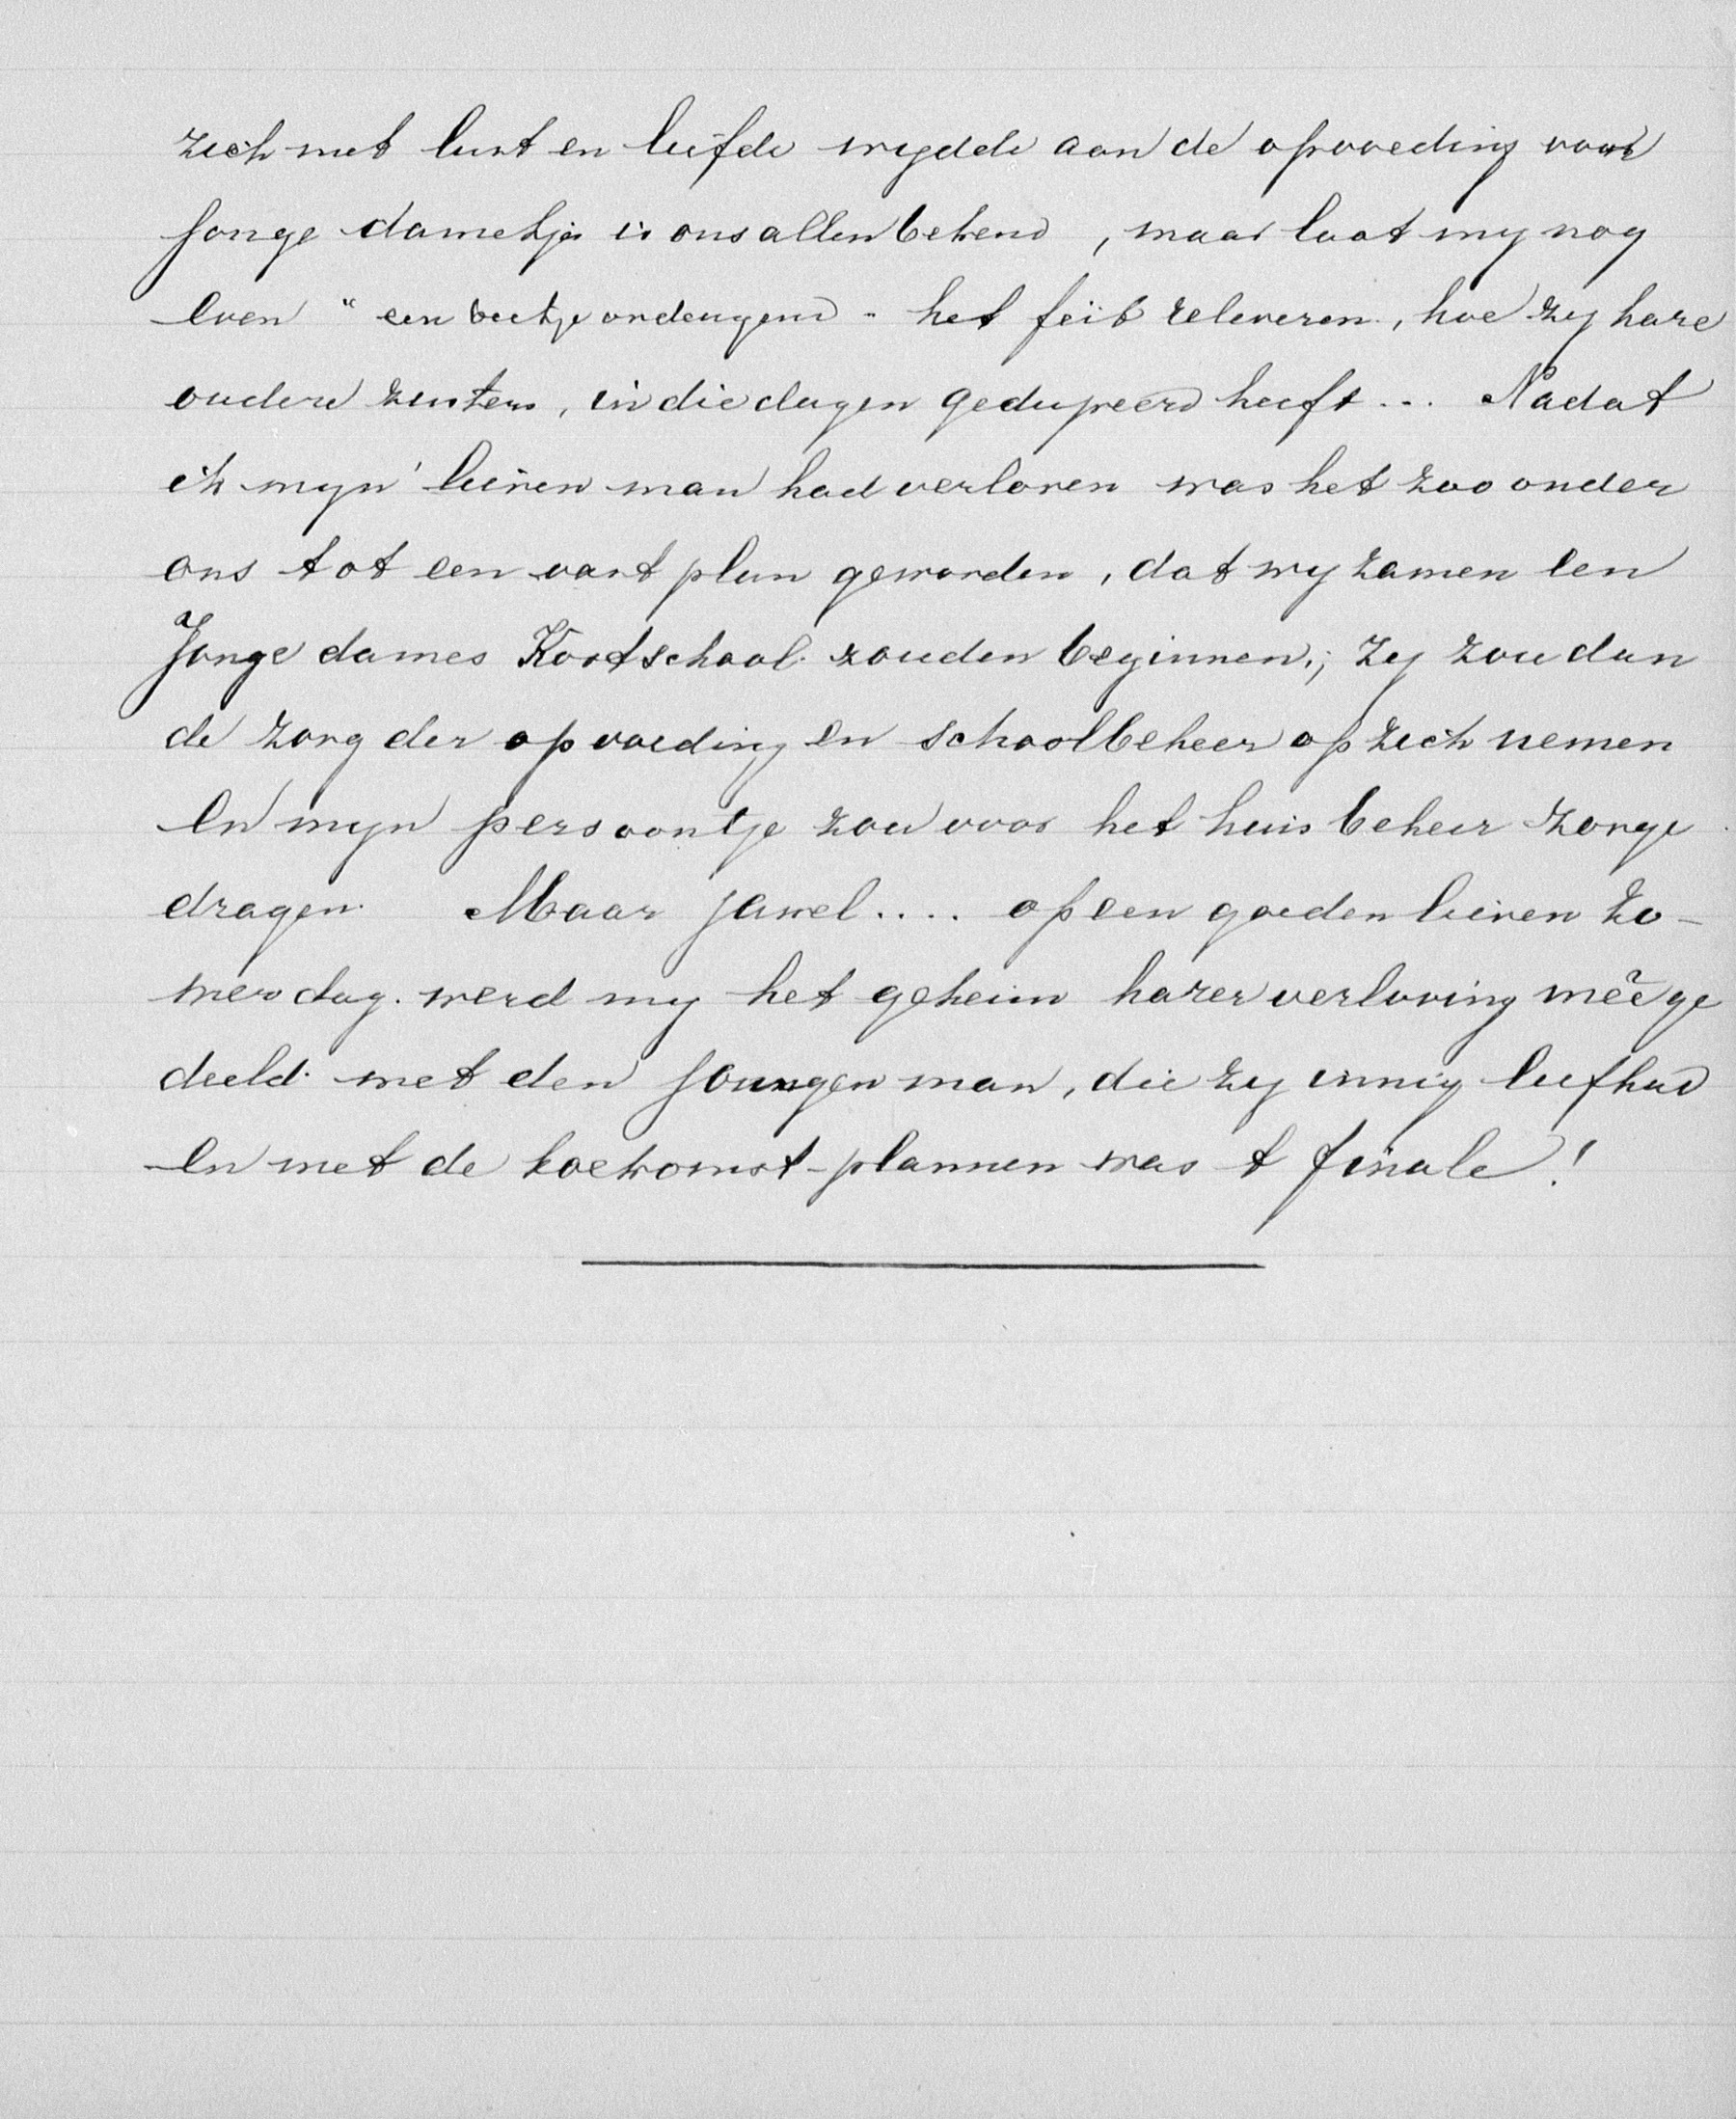 zich met lust en liefde wydde aan de opvoeding van
jonge dametjes is ons allen bekend, maar laat my nog
even "een beetje ondeugend" het feit releveren, hoe zy hare
oudere zusters, in die dagen gedupeerd heeft... Nadat
ik myn' lieven man had verloren was het zoo onder
ons tot een vast plan geworden, dat wy zamen een
Jonge dames Kostschool zouden beginnen; zy zou dan
de zorg der opvoeding en schoolbeheer op zich nemen
en myn persoontje zou voor het huisbeheer zorge
dragen. Maar jawel.... op een goeden lieven zo-
merdag werd my het geheim harer verloving meêge
deeld met den jongen man, die zy innig liefhad
en met de toekomst-plannen was t finale!